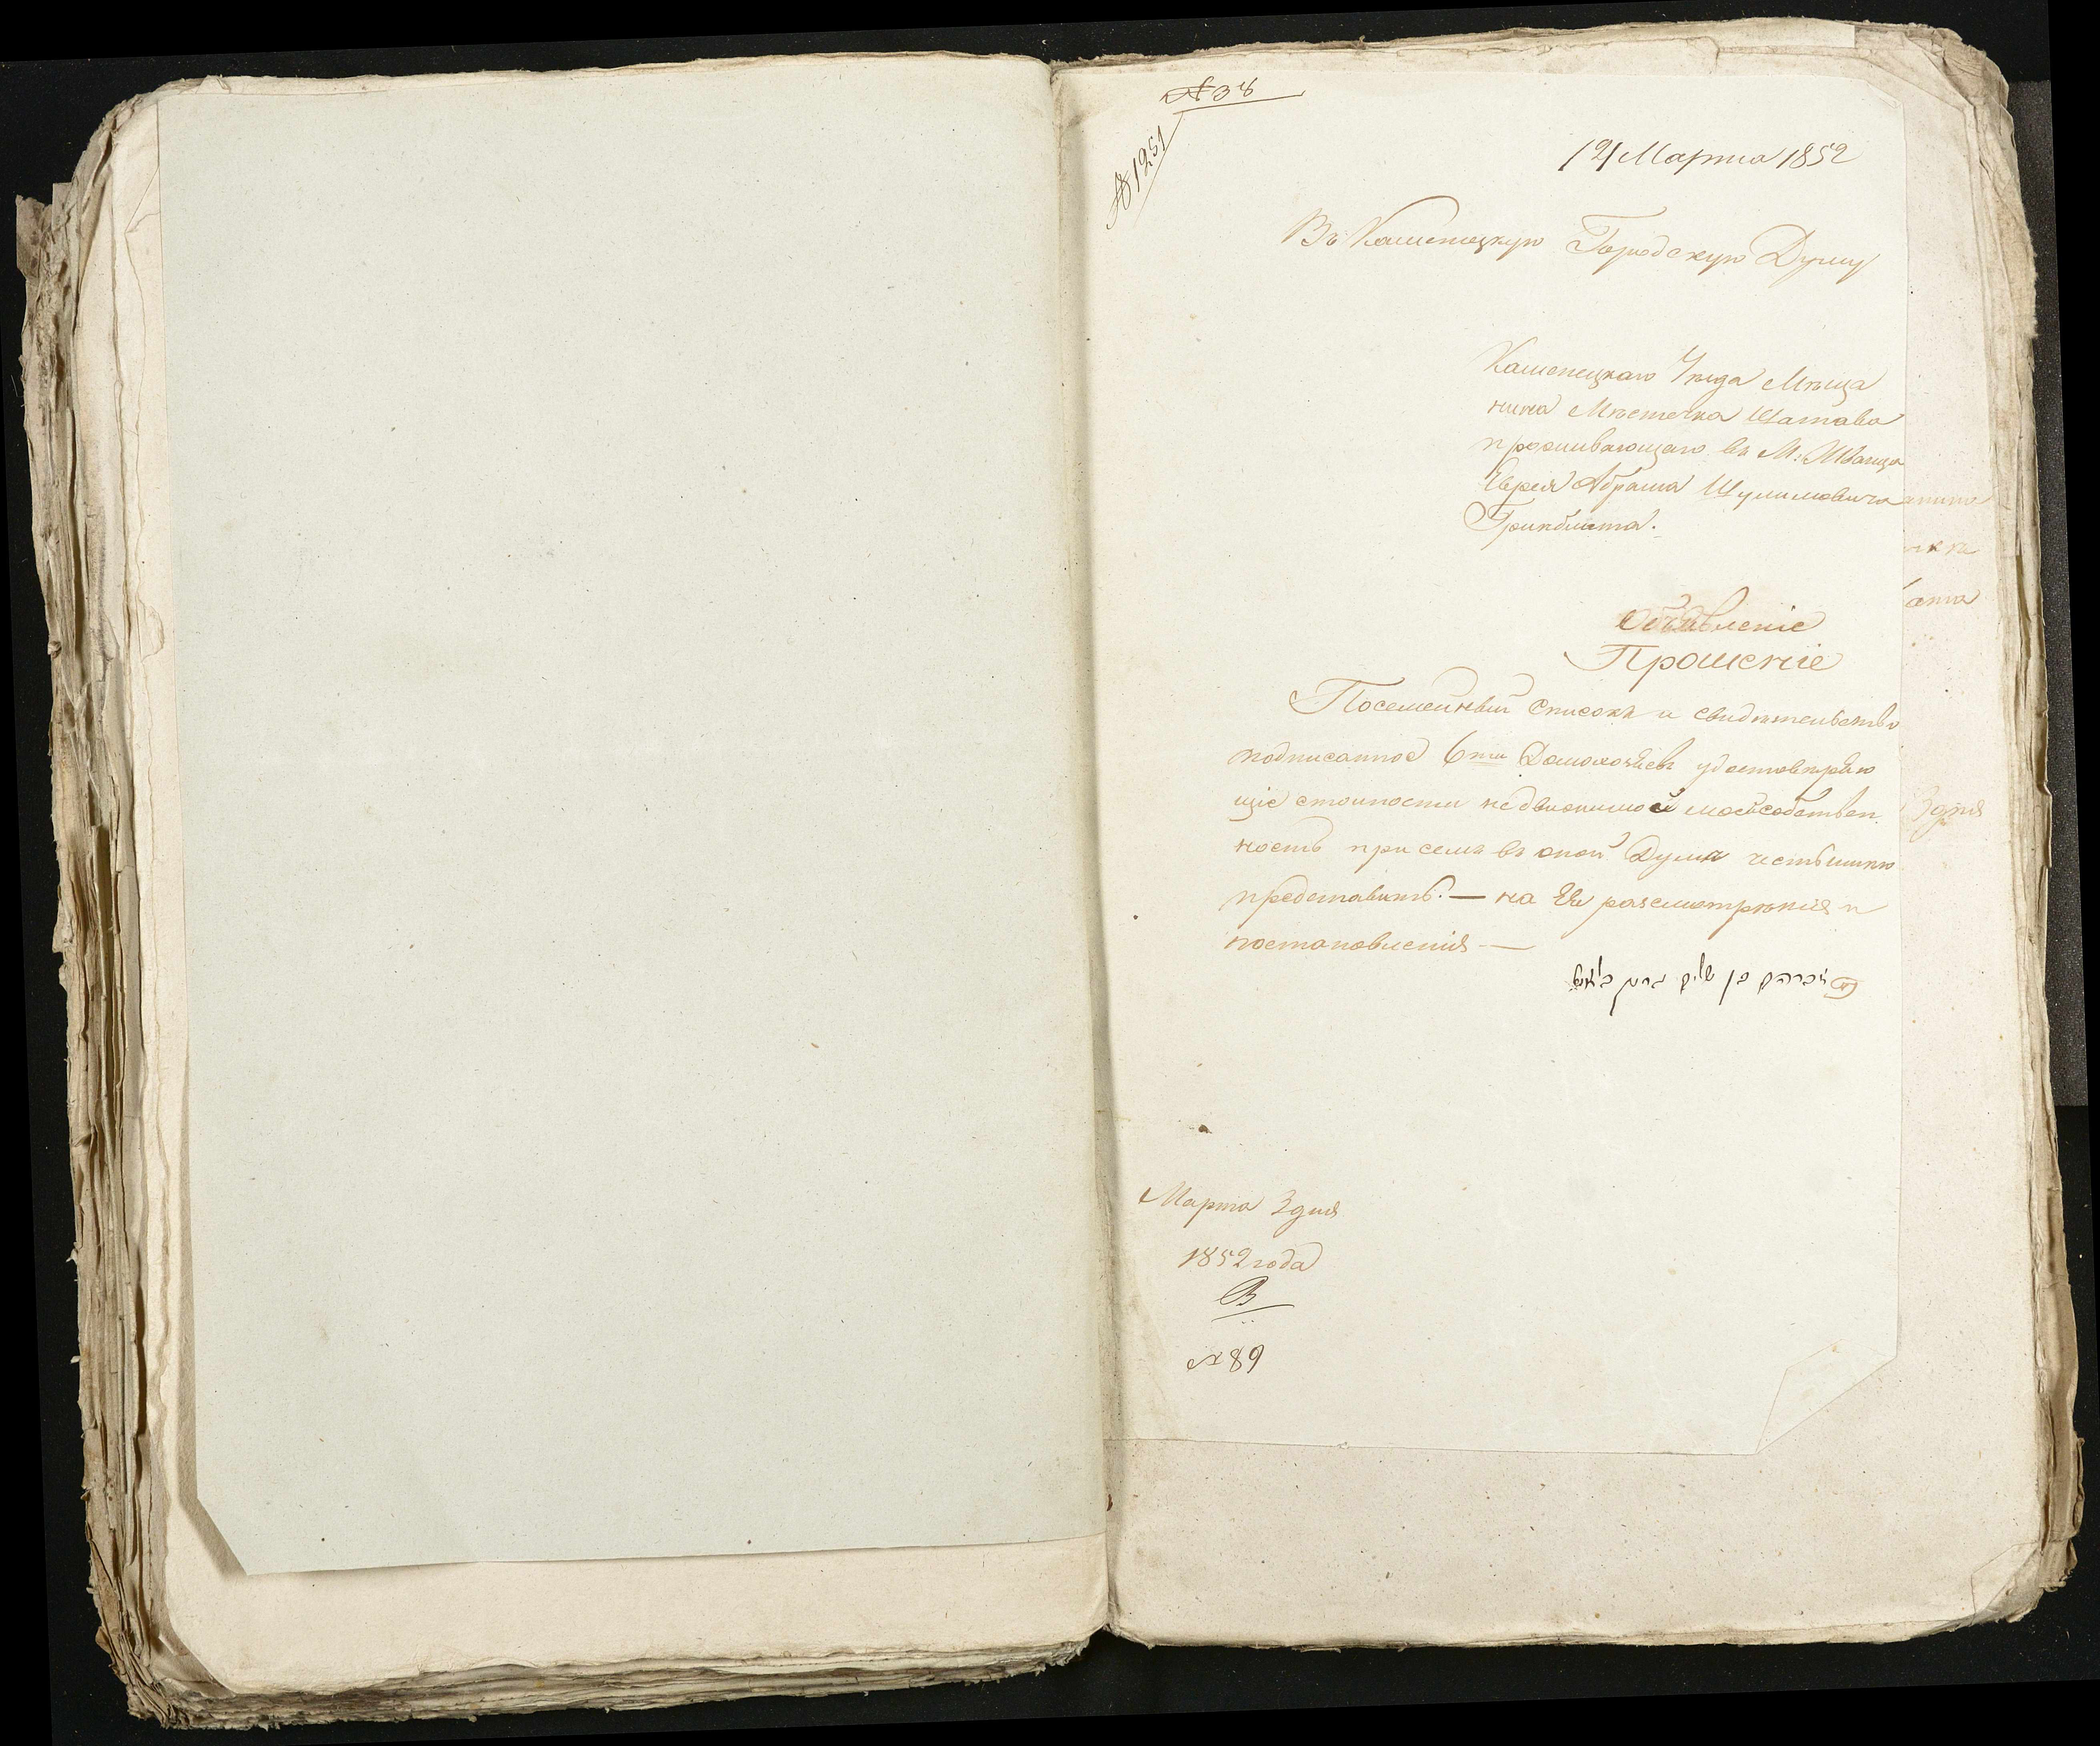 № 38
№ 1251
12 Марта 1852
Въ Каменецкую Городскую Думу
Каменецкаго Уѣзда Мѣща
нина Мѣстечка Шатава
проживающаго въ М: Жванца
Еврея Абрама Шулимовича
Гринблата.
Объявленіе
Прошеніе
Посемейный списокъ и свидѣтельство
подписанное 6ти Домохозяевъ удостовѣряю
щіе стоимости недвижимой моей собствен
ность при семъ въ оной Думы честь имѣю
представить. — на Ея разсмотрѣнія и
постановленія —
אברהם בן שלום גרינבלאט
Марта 3 дня
1852 года
В
№ 89
3 дня